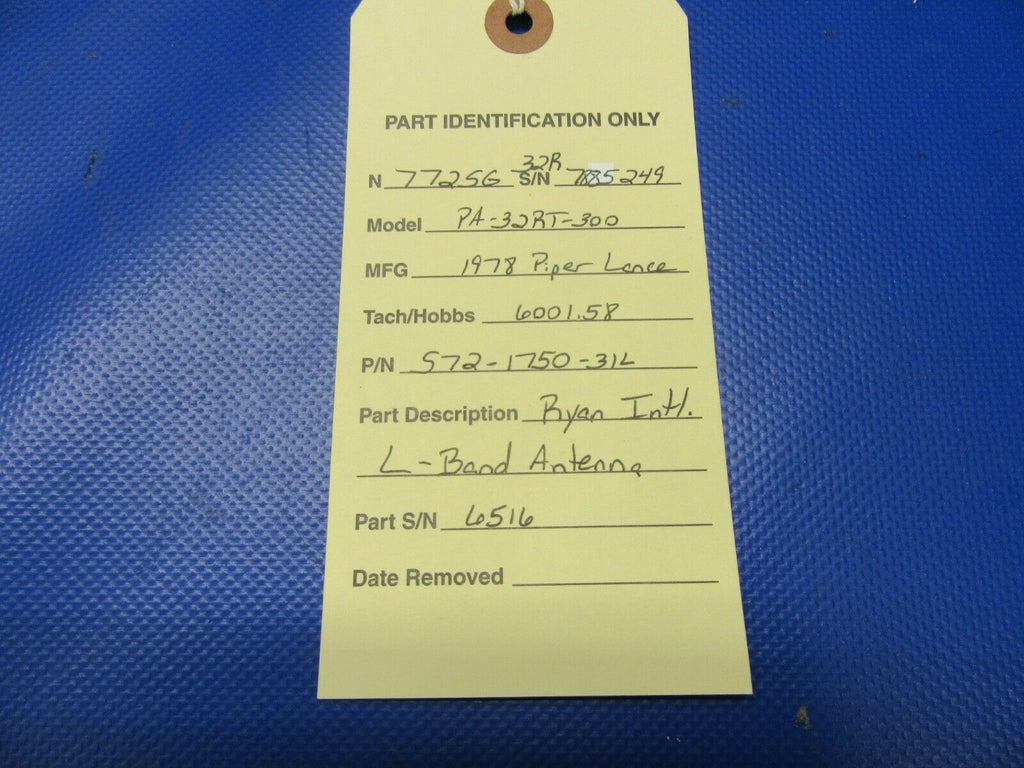 PART IDENTIFICATION ONLY
N 7725G S/N 32R 7885249
Model PA-32RT-300
MFG 1978 Piper Lance
Tach/Hobbs 6001.58
P/N S72-1750-31L
Part Description Ryan Intl.
L-Band Antenna
Part S/N 6516
Date Removed